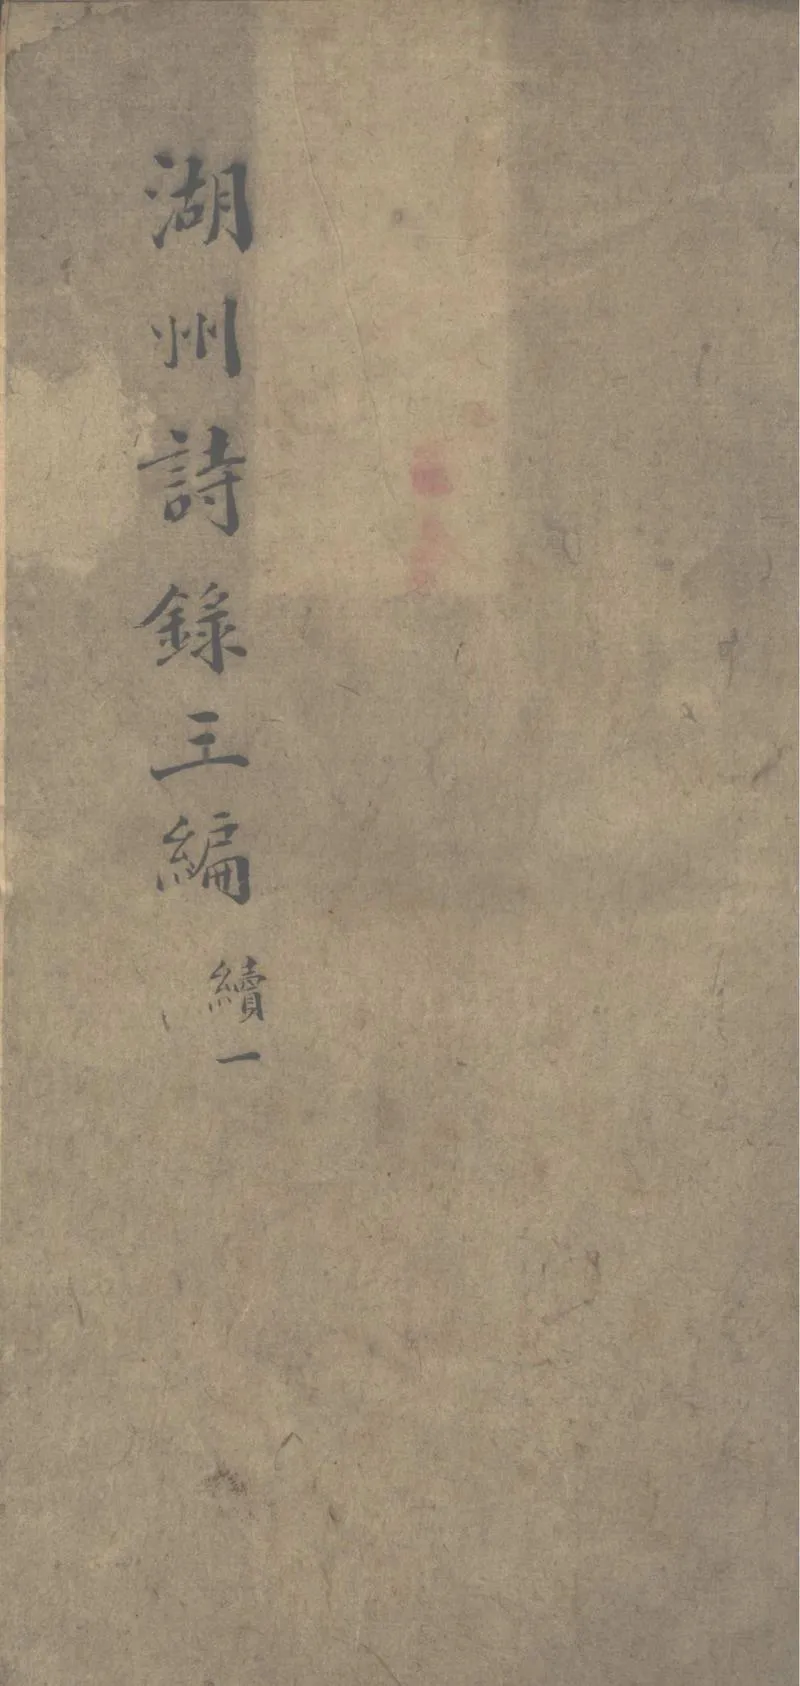 湖州詩錄三編
續一